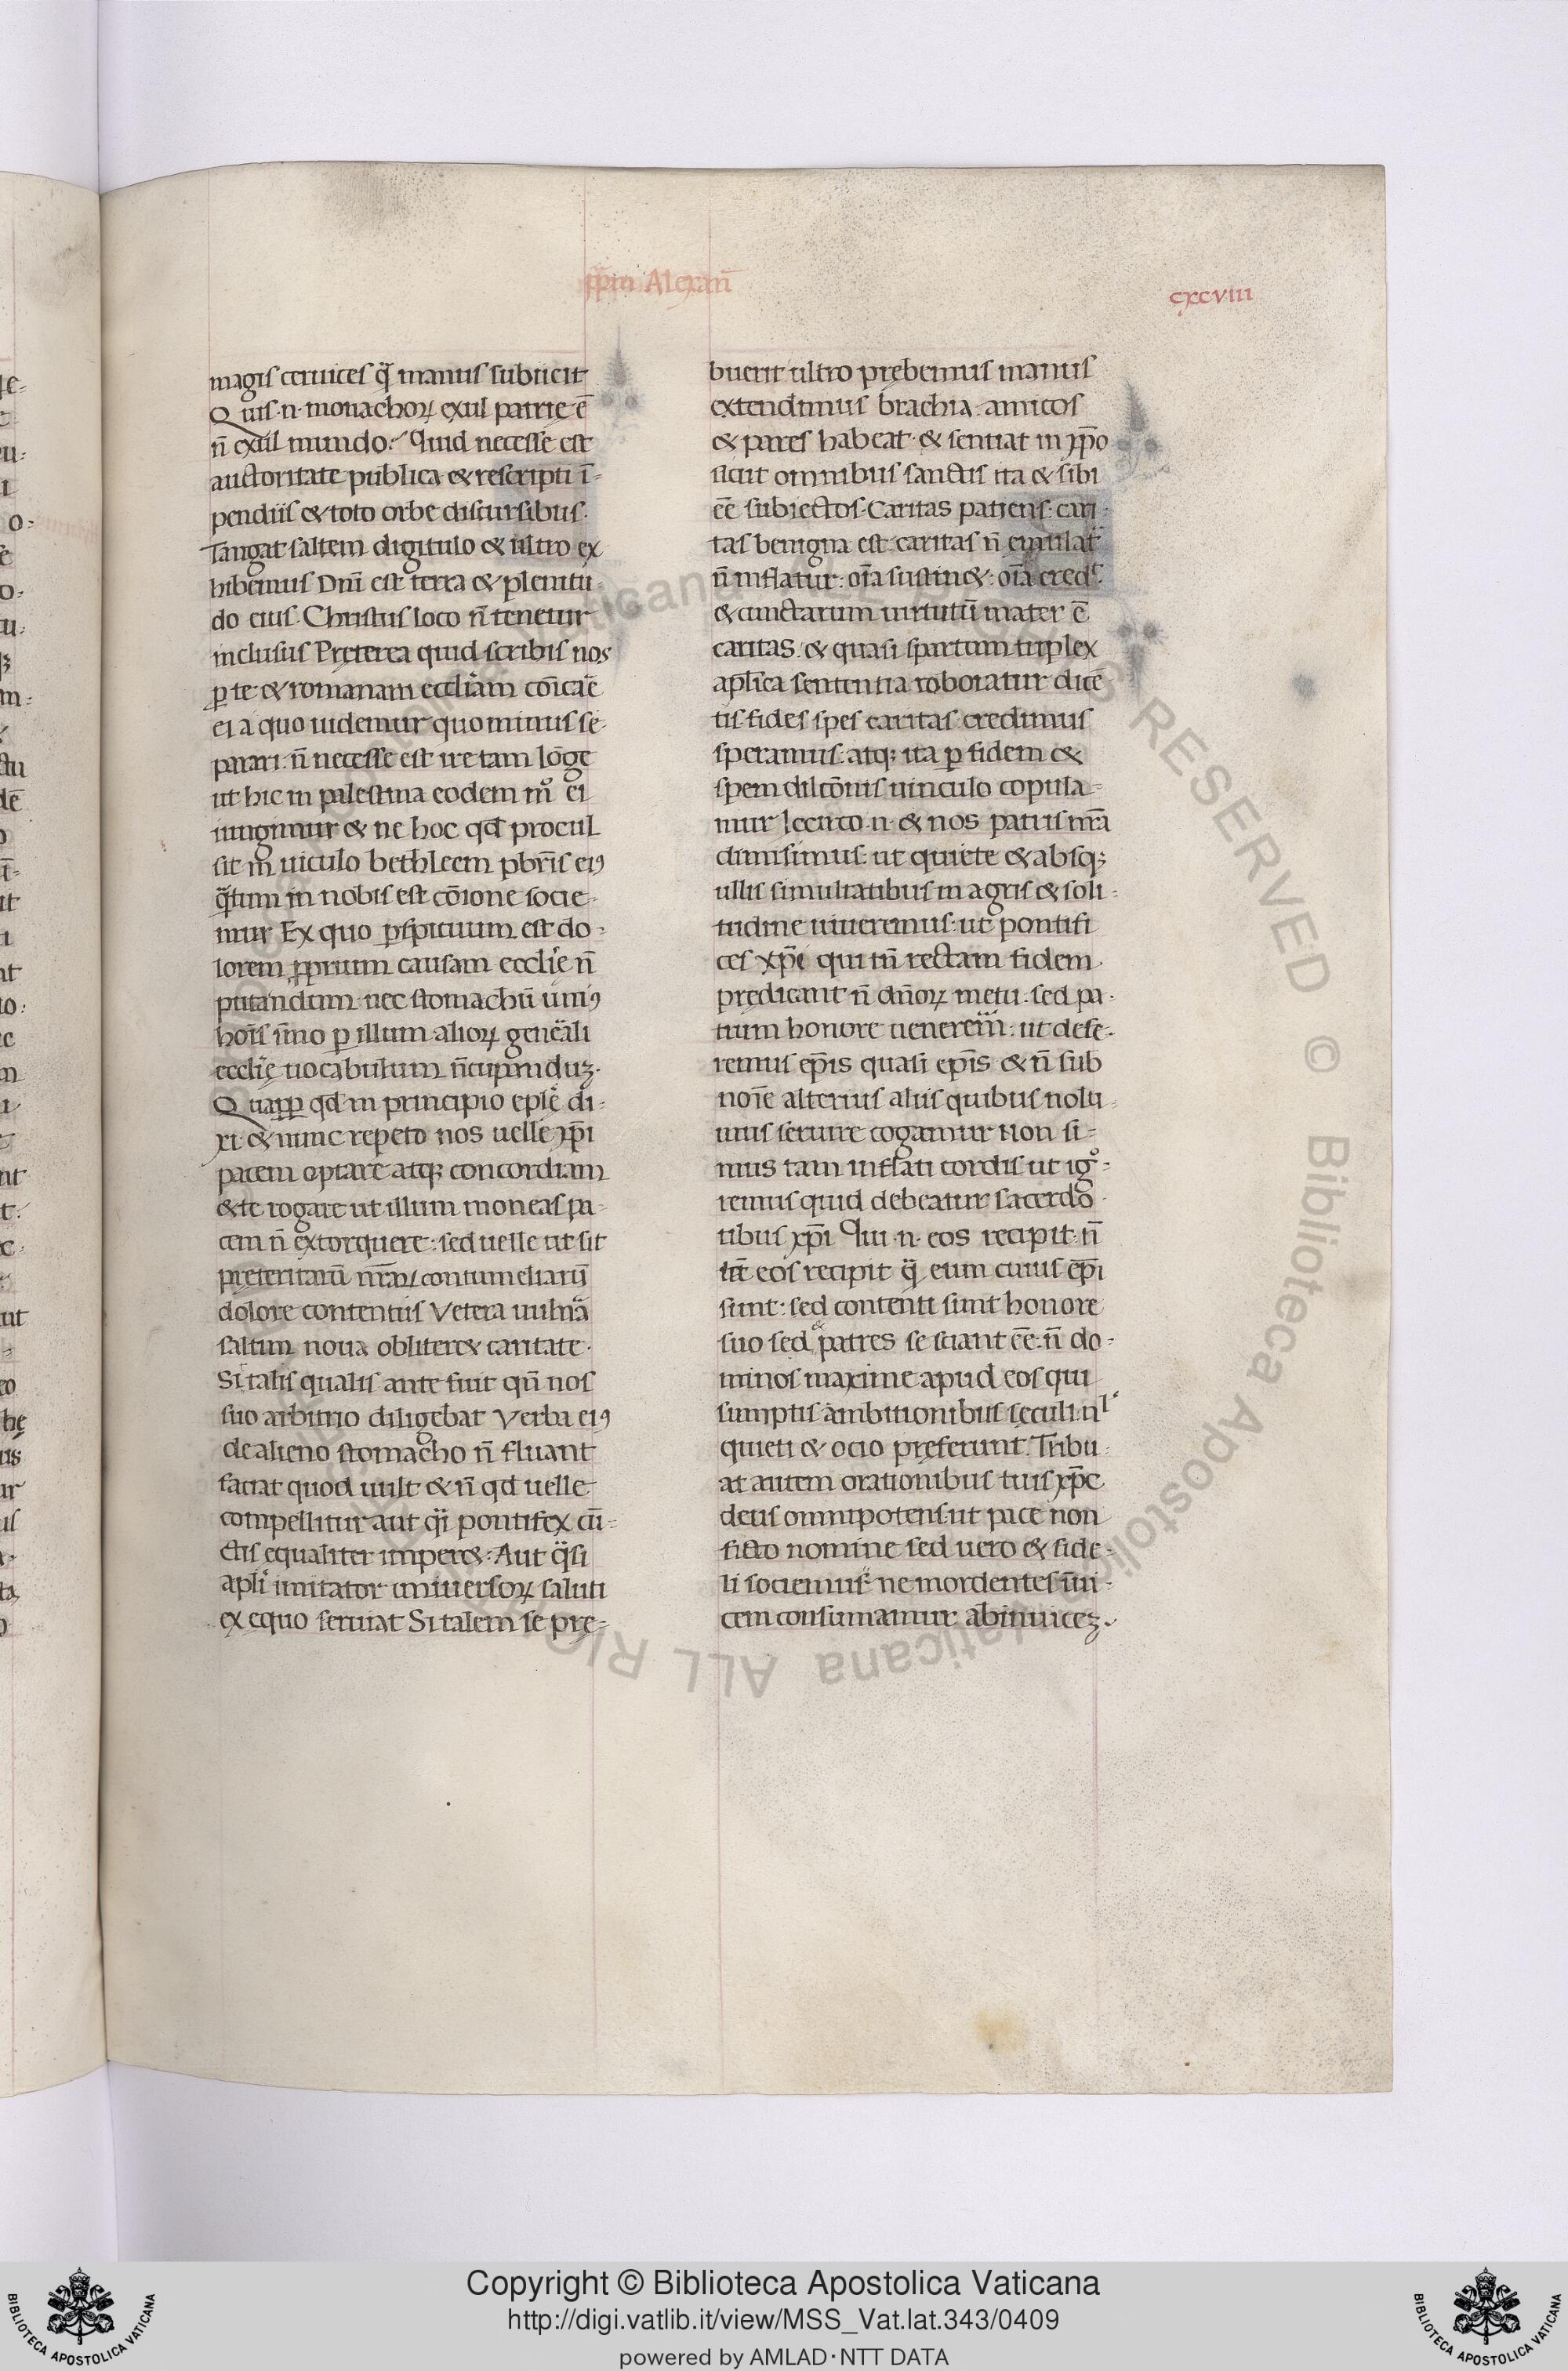 ꝑp̄m Alexan̄
cxcviii
magis ceruices q̄ manus subiicit
Quis .n. monachoꝝ exul patrie ē
n̄ exul mundo? Quid necesse est
auctoritate publica & rescripti ī-
pendiis & toto orbe discursibus.
Tangat saltem digitulo & ultro ex
hibemus Dn̄i est terra & plenitu-
do eius. Christus loco n̄ tenetur
inclusus Pręterea quid scribis nos
ꝑ te & romanam eccl̄iam cōicaē
ei a quo uidemur quominus se-
parari: n̄ necesse est ire tam lōge
ut hic in palestina eodem m̊ ei
iungimur & ne hoc qd̄ procul
sit in uiculo bethleem pb̄ris eiꝰ
q̄tum in nobis est cōione socie-
mur Ex quo ꝑspicuum est do-
lorem ꝓprium causam eccl̄ię n̄
putandum nec stomachū uniꝰ
hoīs īmo ꝑ illum alioꝝ genēali
eccl̄ię uocabulum n̄cupanduꝫ.
Quaꝓꝑ qd̄ in principio epl̄ę di-
xi & nunc repeto nos uelle xp̄i
pacem optare atqꝫ concordiam
& te rogare ut illum moneas pa-
cem n̄ extorquere: sed uelle ut sit
pręteritarū nr̄aꝝ contumeliarū
dolore contentus Vetera uulnā
saltim noua obliter& caritate.
Si talis qualis ante fuit qn̄ nos
suo arbitrio diligebat Verba eiꝰ
de alieno stomacho n̄ fluant
faciat quod uult & n̄ qd uelle
compellitur aut q̄i pontifex cū-
ctis equaliter imper&: Aut q̄si
apl̄i imitator uniuersoꝝ saluti
ex equo seruiat Si talem se prę-
buerit ultro prębemus manus
extendimus brachia. amicos
& pares habeat. & sentiat in xp̄o
sicut omnibus sanctis ita & sibi
eē subiectos. Caritas patiens: cari-
tas benigna est: caritas n̄ emulat᷑
n̄ inflatur: oīa sustin&: oīa cred᷑.
& cunctarum uirtutū mater ē
caritas. & quasi spartum triplex
apl̄ica sententia roboratur dicē
tis fides spes caritas. credimus
speramus: atqꝫ ita ꝑ fidem &
spem dilc̄ōnis uinculo copula-
mur Iccirco .n. & nos patris nr̄a
dimisimus: ut quiete & absqꝫ
ullis simultatibus in agris & soli-
tudine uiueremus: ut pontifi
ces xp̄i qui tn̄ rectam fidem
prędicant n̄ dn̄oꝝ metu. sed pa-
trum honore uenerem᷑: ut defe-
remus ep̄is quasi ep̄is. & n̄ sub
noīe alterius aliis quibus nolu-
mus seruire cogamur Non si-
mus tam inflati cordis ut ig̊-
remus quid debeatur sacerdo
tibus xp̄i Qui .n. eos recipit: n̄
tā eos recipit q̄ eum cuius ep̄i
sunt: sed contenti sunt honore
suo sed & patres se sciant eē: n̄ do-
minos maxime apud eos qui
sumptis ambitionibus sęculi: nl᷑
quieti & ocio pręferunt. Tribu-
at autem orationibus tuis xp̄c
deus omnipotens: ut pace non
ficto nomine sed uero & fide-
li sociemur ne mordentes īui-
cem consumamur ab inuiceꝫ.
Copyright © Biblioteca Apostolica Vaticana
http://digi.vatlib.it/view/MSS_Vat.lat.343/0409
powered by AMLAD·NTT DATA